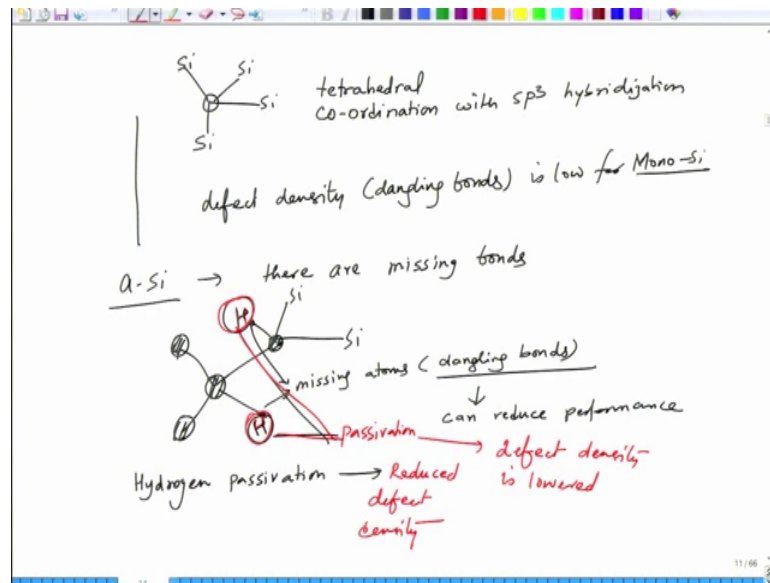 Si
Si
Si
Si
tetrahedral
co-ordination with sp3 hybridization
defect density (dangling bonds) is low for Mono-Si
a-Si → there are missing bonds
Si
H
Si
missing atoms (dangling bonds)
can reduce performance
H
passivation → defect density
is lowered
Hydrogen passivation → Reduced
defect
density
11/66